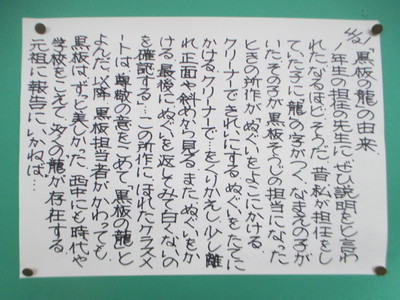 4/12
「黒板の龍」の由来
1年生の担任の先生に、ぜひ説明をと言わ
れた。なるほど、そうだ。昔私が担任をし
ていた子に「龍」の字がつく、なまえの子が
いた。その子が黒板そうじの担当になった
ときの所作が、ぬぐいをよこにかける。
クリーナーできれいにする。ぬぐいをたてに
かける。クリーナーで…をくりかえし、少し離
れ正面や斜めから見る。また、ぬぐいをか
ける。最後にぬぐいを返してみて白くないの
を確認する…。この所作にほれたクラスメ
ートは、尊敬の意をこめて「黒板の龍」と
よんだ。以降、黒板担当者がかわっても
黒板は、ずっと美しかった。西中にも時代や
学校をこえて、多くの龍が存在する。
元祖に報告にいかねば…